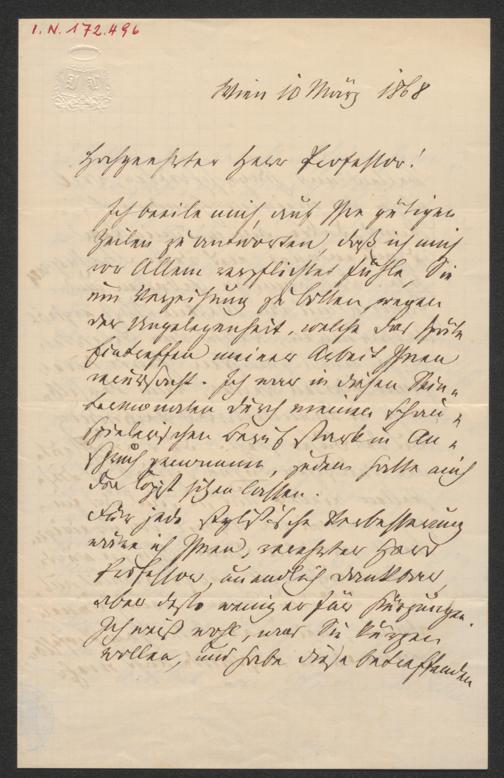 I.N. 172.496
Wien 10 März 1868
Hochgeehrter Herr Professor!
Ich beeile mich, auf Ihre gütigen
Zeilen zu antworten, daß ich mich
vor Allem verpflichtet fühle, Sie
um Verzeihung zu bitten wegen
der Ungelegenheit, welche das späte
Eintreffen meiner Arbeit Ihnen
verursacht. Ich war in diesen Win-
termonaten durch meinen schau-
spielerischen Beruf stark in An-
spruch genommen, zudem hatte mich
sitzen lassen.
Für jede stylistische Verbesserung
wäre ich Ihnen, verehrter Herr
Professor, unendlich dankbar,
aber desto weniger für Kürzungen.
Ich weiß wohl, was Sie kürzen
wollen, und habe diese betreffenden